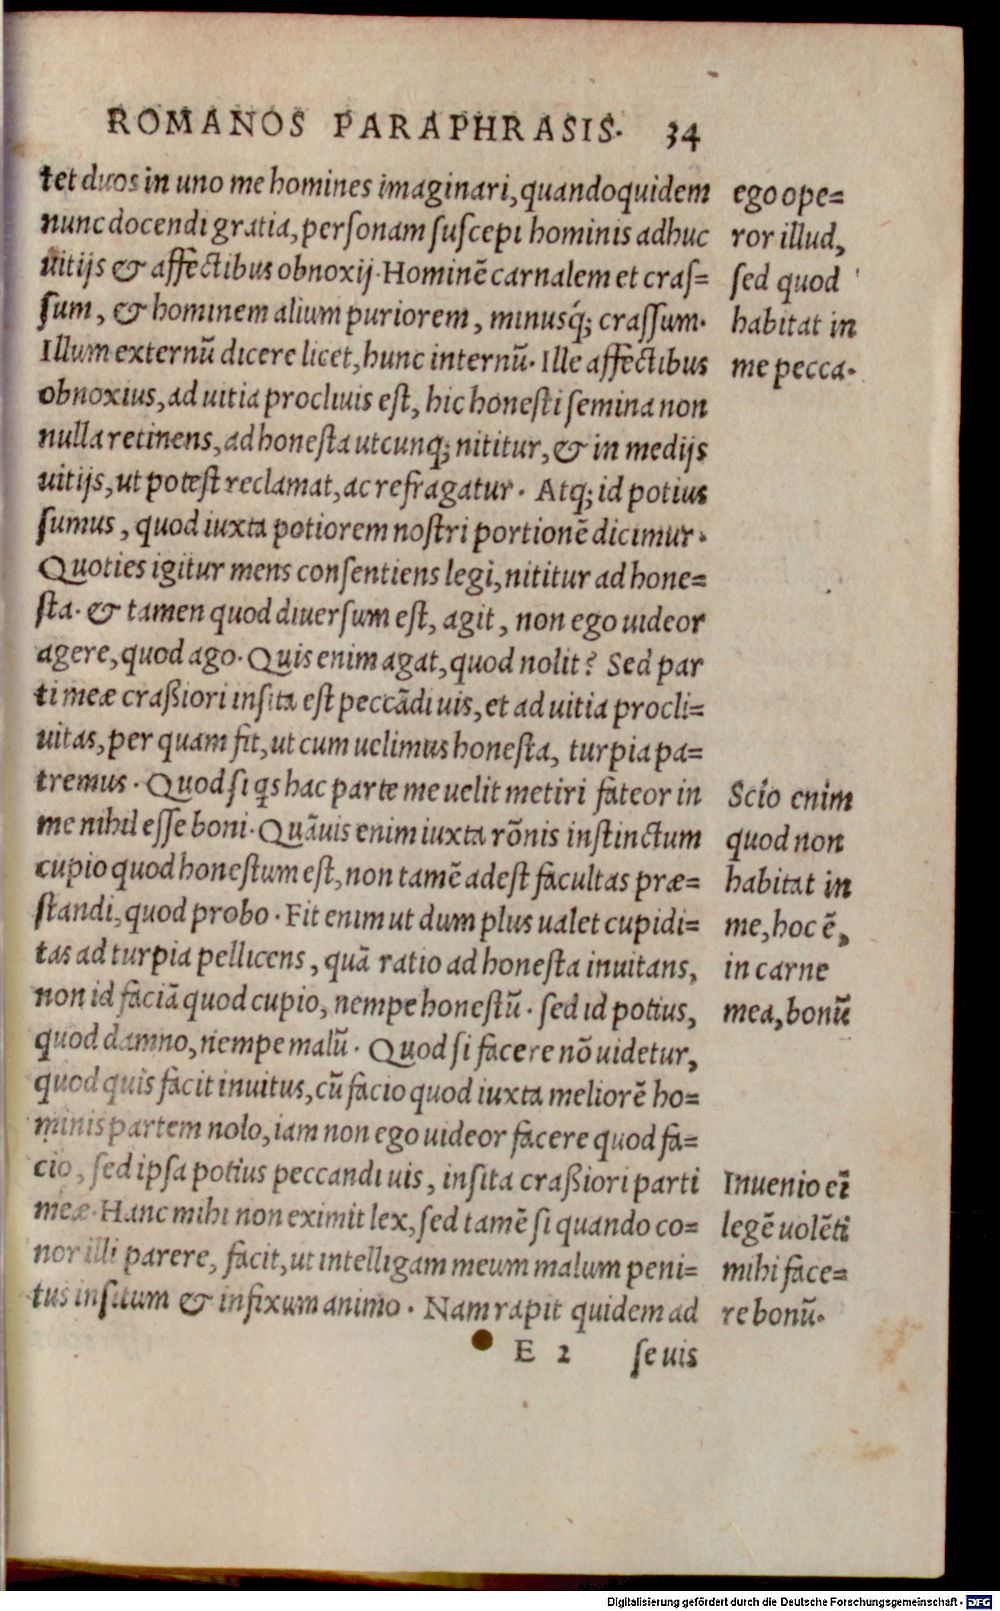 ROMANOS PARAPHRASIS. 34
tet duos in uno me homines imaginari, quandoquidem
nunc docendi gratia, personam suscepi hominis adhuc
uitijs & affectibus obnoxij. Hominē carnalem et cras=
sum, & hominem alium puriorem, minusq́; crassum.
Illum externū dicere licet, hunc internū. Ille affectibus
obnoxius, ad uitia procliuis est, hic honesti semina non
nulla retinens, ad honesta utcunq; nititur, & in medijs
uitijs, ut potest reclamat, ac refragatur. Atq; id potius
sumus, quod iuxta potiorem nostri portionē dicimur.
Quoties igitur mens consentiens legi, nititur ad hone=
sta. & tamen quod diuersum est, agit, non ego uideor
agere, quod ago. Quis enim agat, quod nolit? Sed par
ti meæ craßiori insita est peccādi uis, et ad uitia procli=
uitas, per quam fit, ut cum uelimus honesta, turpia pa=
tremus. Quod si qs hac parte me uelit metiri fateor in
me nihil esse boni. Quāuis enim iuxta rōnis instinctum
cupio quod honestum est, non tamē adest facultas præ=
standi, quod probo. Fit enim ut dum plus ualet cupidi=
tas ad turpia pellicens, quā ratio ad honesta inuitans,
non id faciā quod cupio, nempe honestū. sed id potius,
quod damno, nempe malū. Quod si facere nō uidetur,
quod quis facit inuitus, cū facio quod iuxta meliorē ho=
minis partem nolo, iam non ego uideor facere quod fa=
cio, sed ipsa potius peccandi uis, insita craßiori parti
meæ. Hanc mihi non eximit lex, sed tamē si quando co=
nor illi parere, facit, ut intelligam meum malum peni=
tus insitum & infixum animo. Nam rapit quidem ad
E 2 se uis
ego ope=
ror illud,
sed quod
habitat in
me pecca.
Scio enim
quod non
habitat in
me, hoc ē,
in carne
mea, bonū
Inuenio eī
legē uolēti
mihi face=
re bonū.
Digitalisierung gefördert durch die Deutsche Forschungsgemeinschaft - DFG